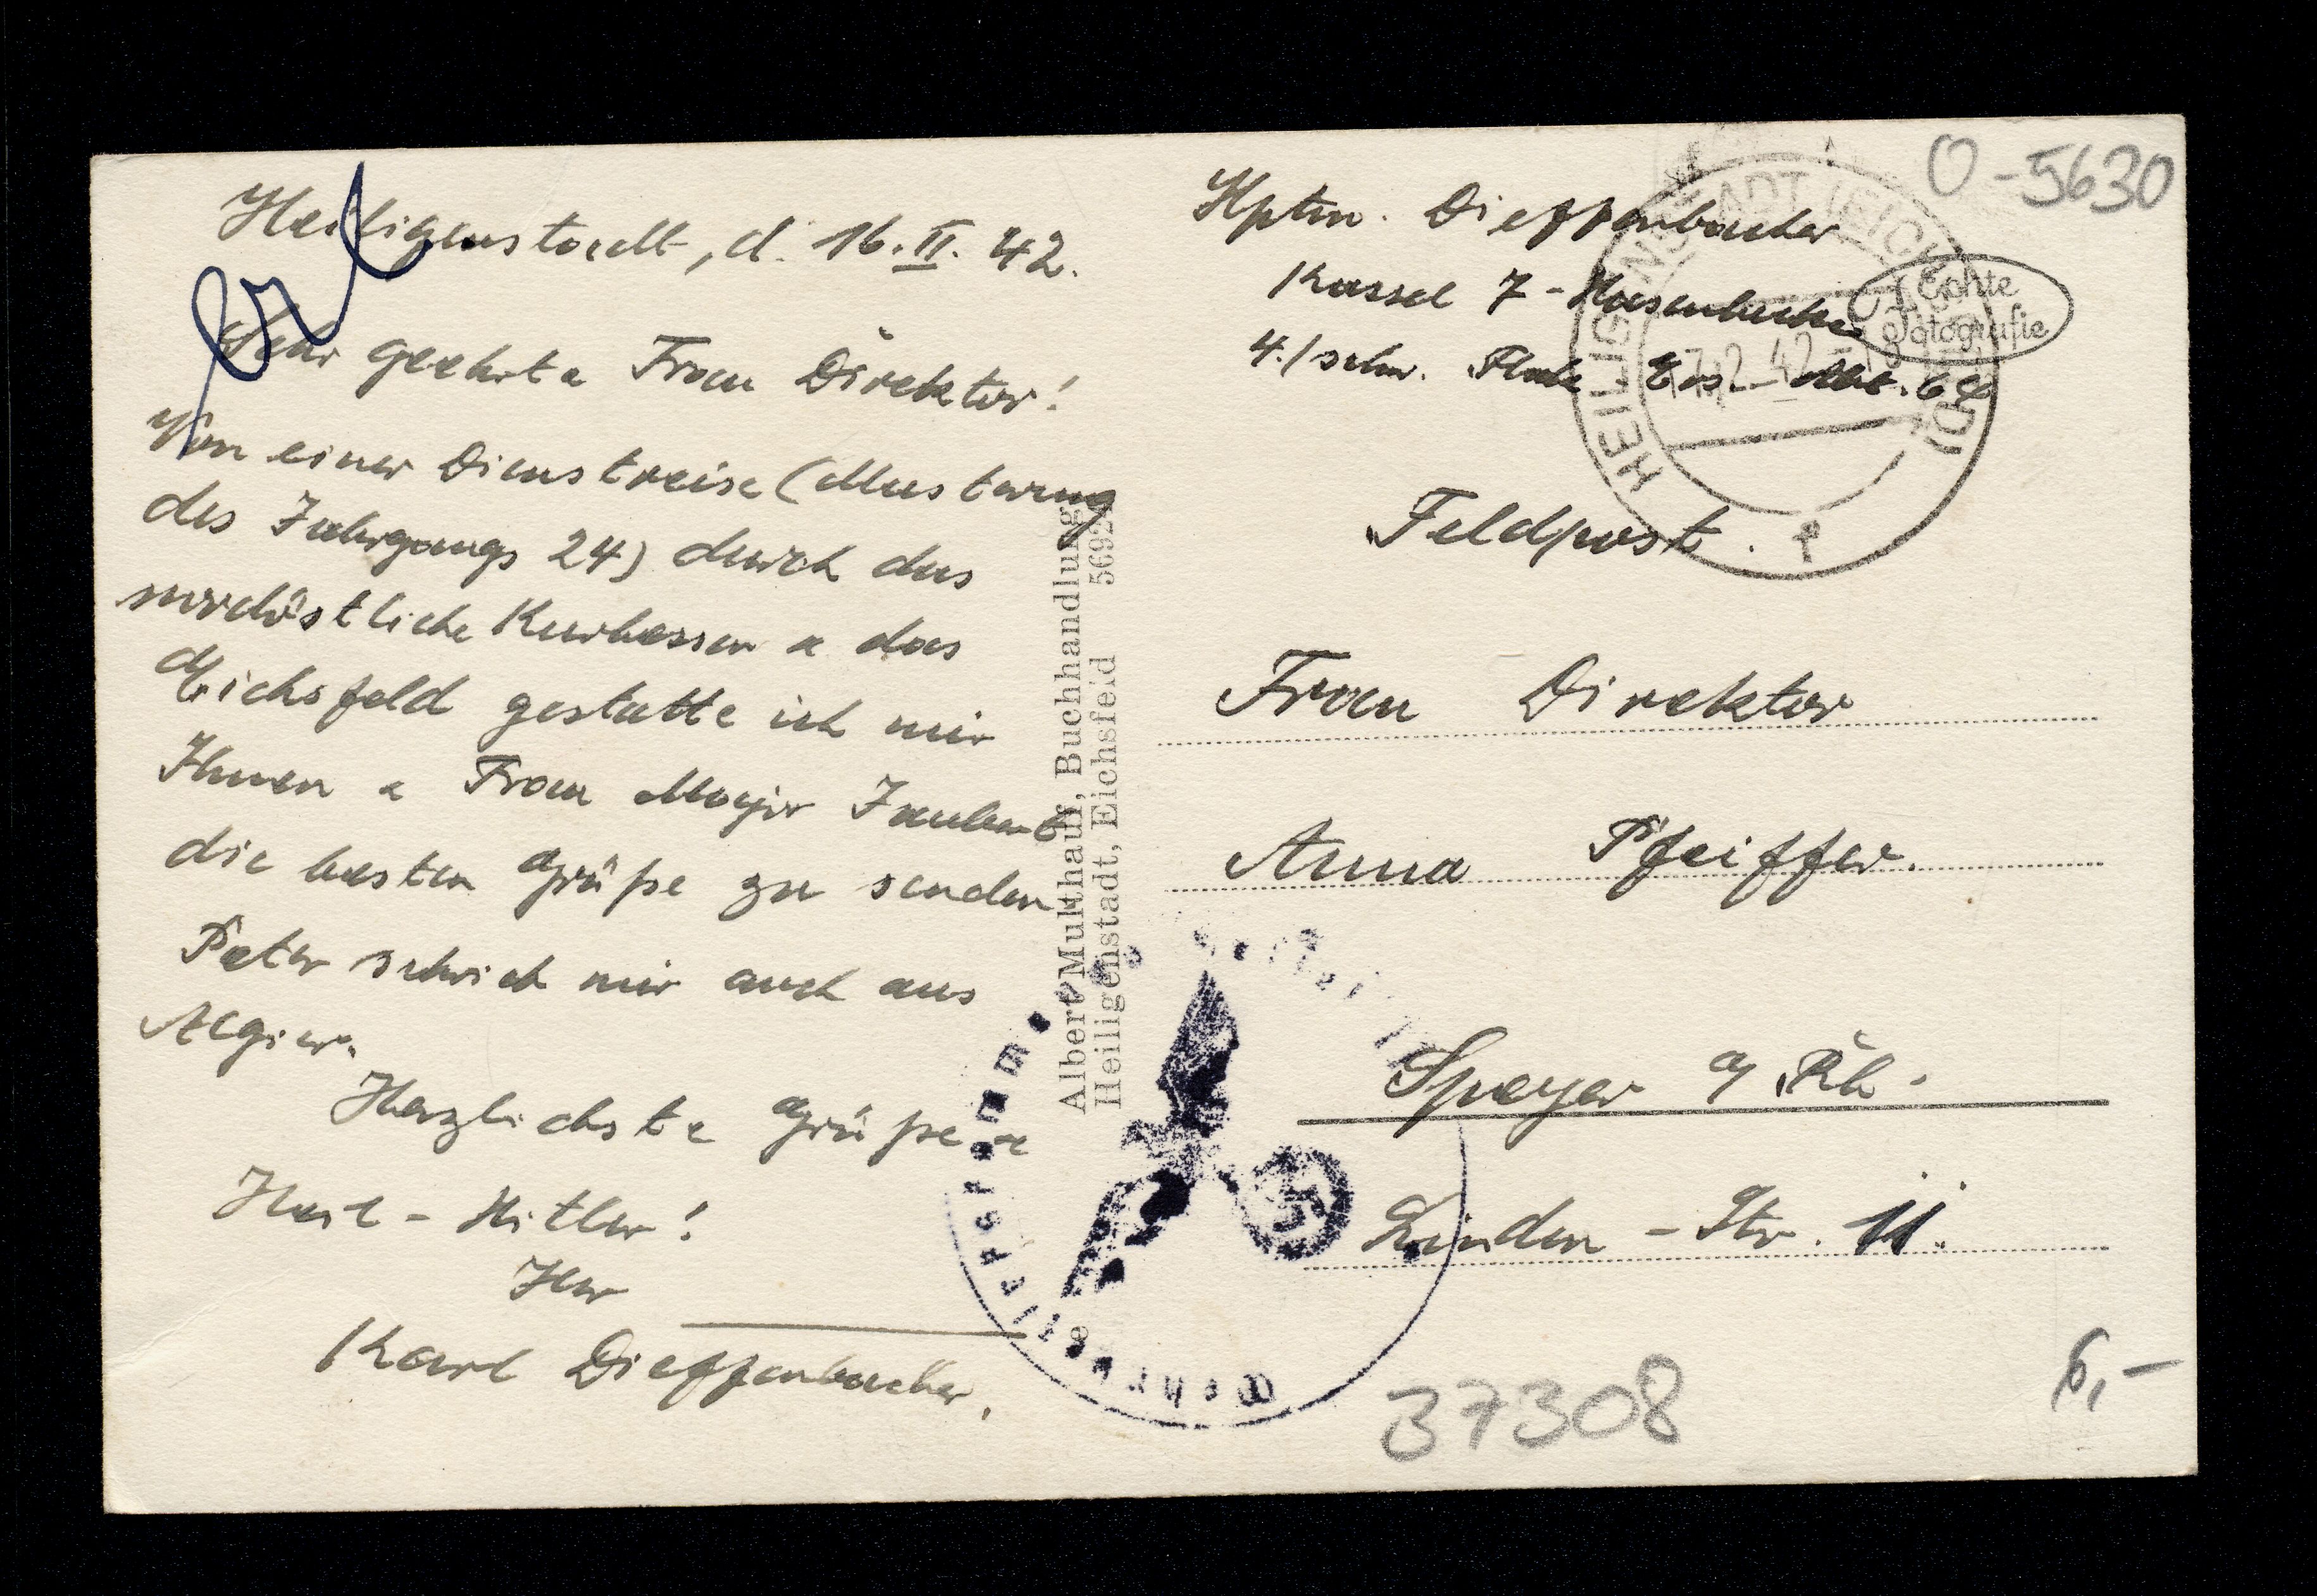 Heiligenstadt, d. 16. II. 42.
Sehr geehrte Frau Direktor!
Von einer Dienstreise (Musterung
des Jahrgangs 24) durch das
nordöstliche Kurhessen u das
Eichsfeld gestatte ich mir
Ihnen u Frau Major
die besten Grüße zu senden.
Peter schrieb mir auch aus
Algier.
Herzlichste Grüße u
Heil-Hitler!
Ihr
Karl Dieffenbacher.
Albert Multhauf, Buchhandlung
Heiligenstadt, Eichsfeld 5692
Hptm. Dieffenbacher
Kassel 7-Hasenhecke
4./schw. Flak Ers.-Abt.
Feldpost.
HEILIGENSTADT (EICHSFELD)
17.2.42
Echte
Fotografie
O-5630
Frau Direktor
Anna Pfeiffer.
Speyer a/Rh.
Linden-Str. 11.
37308
6,-